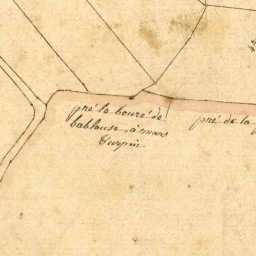 pré le bouré de
bablause, à mars
Turpin
pré de la